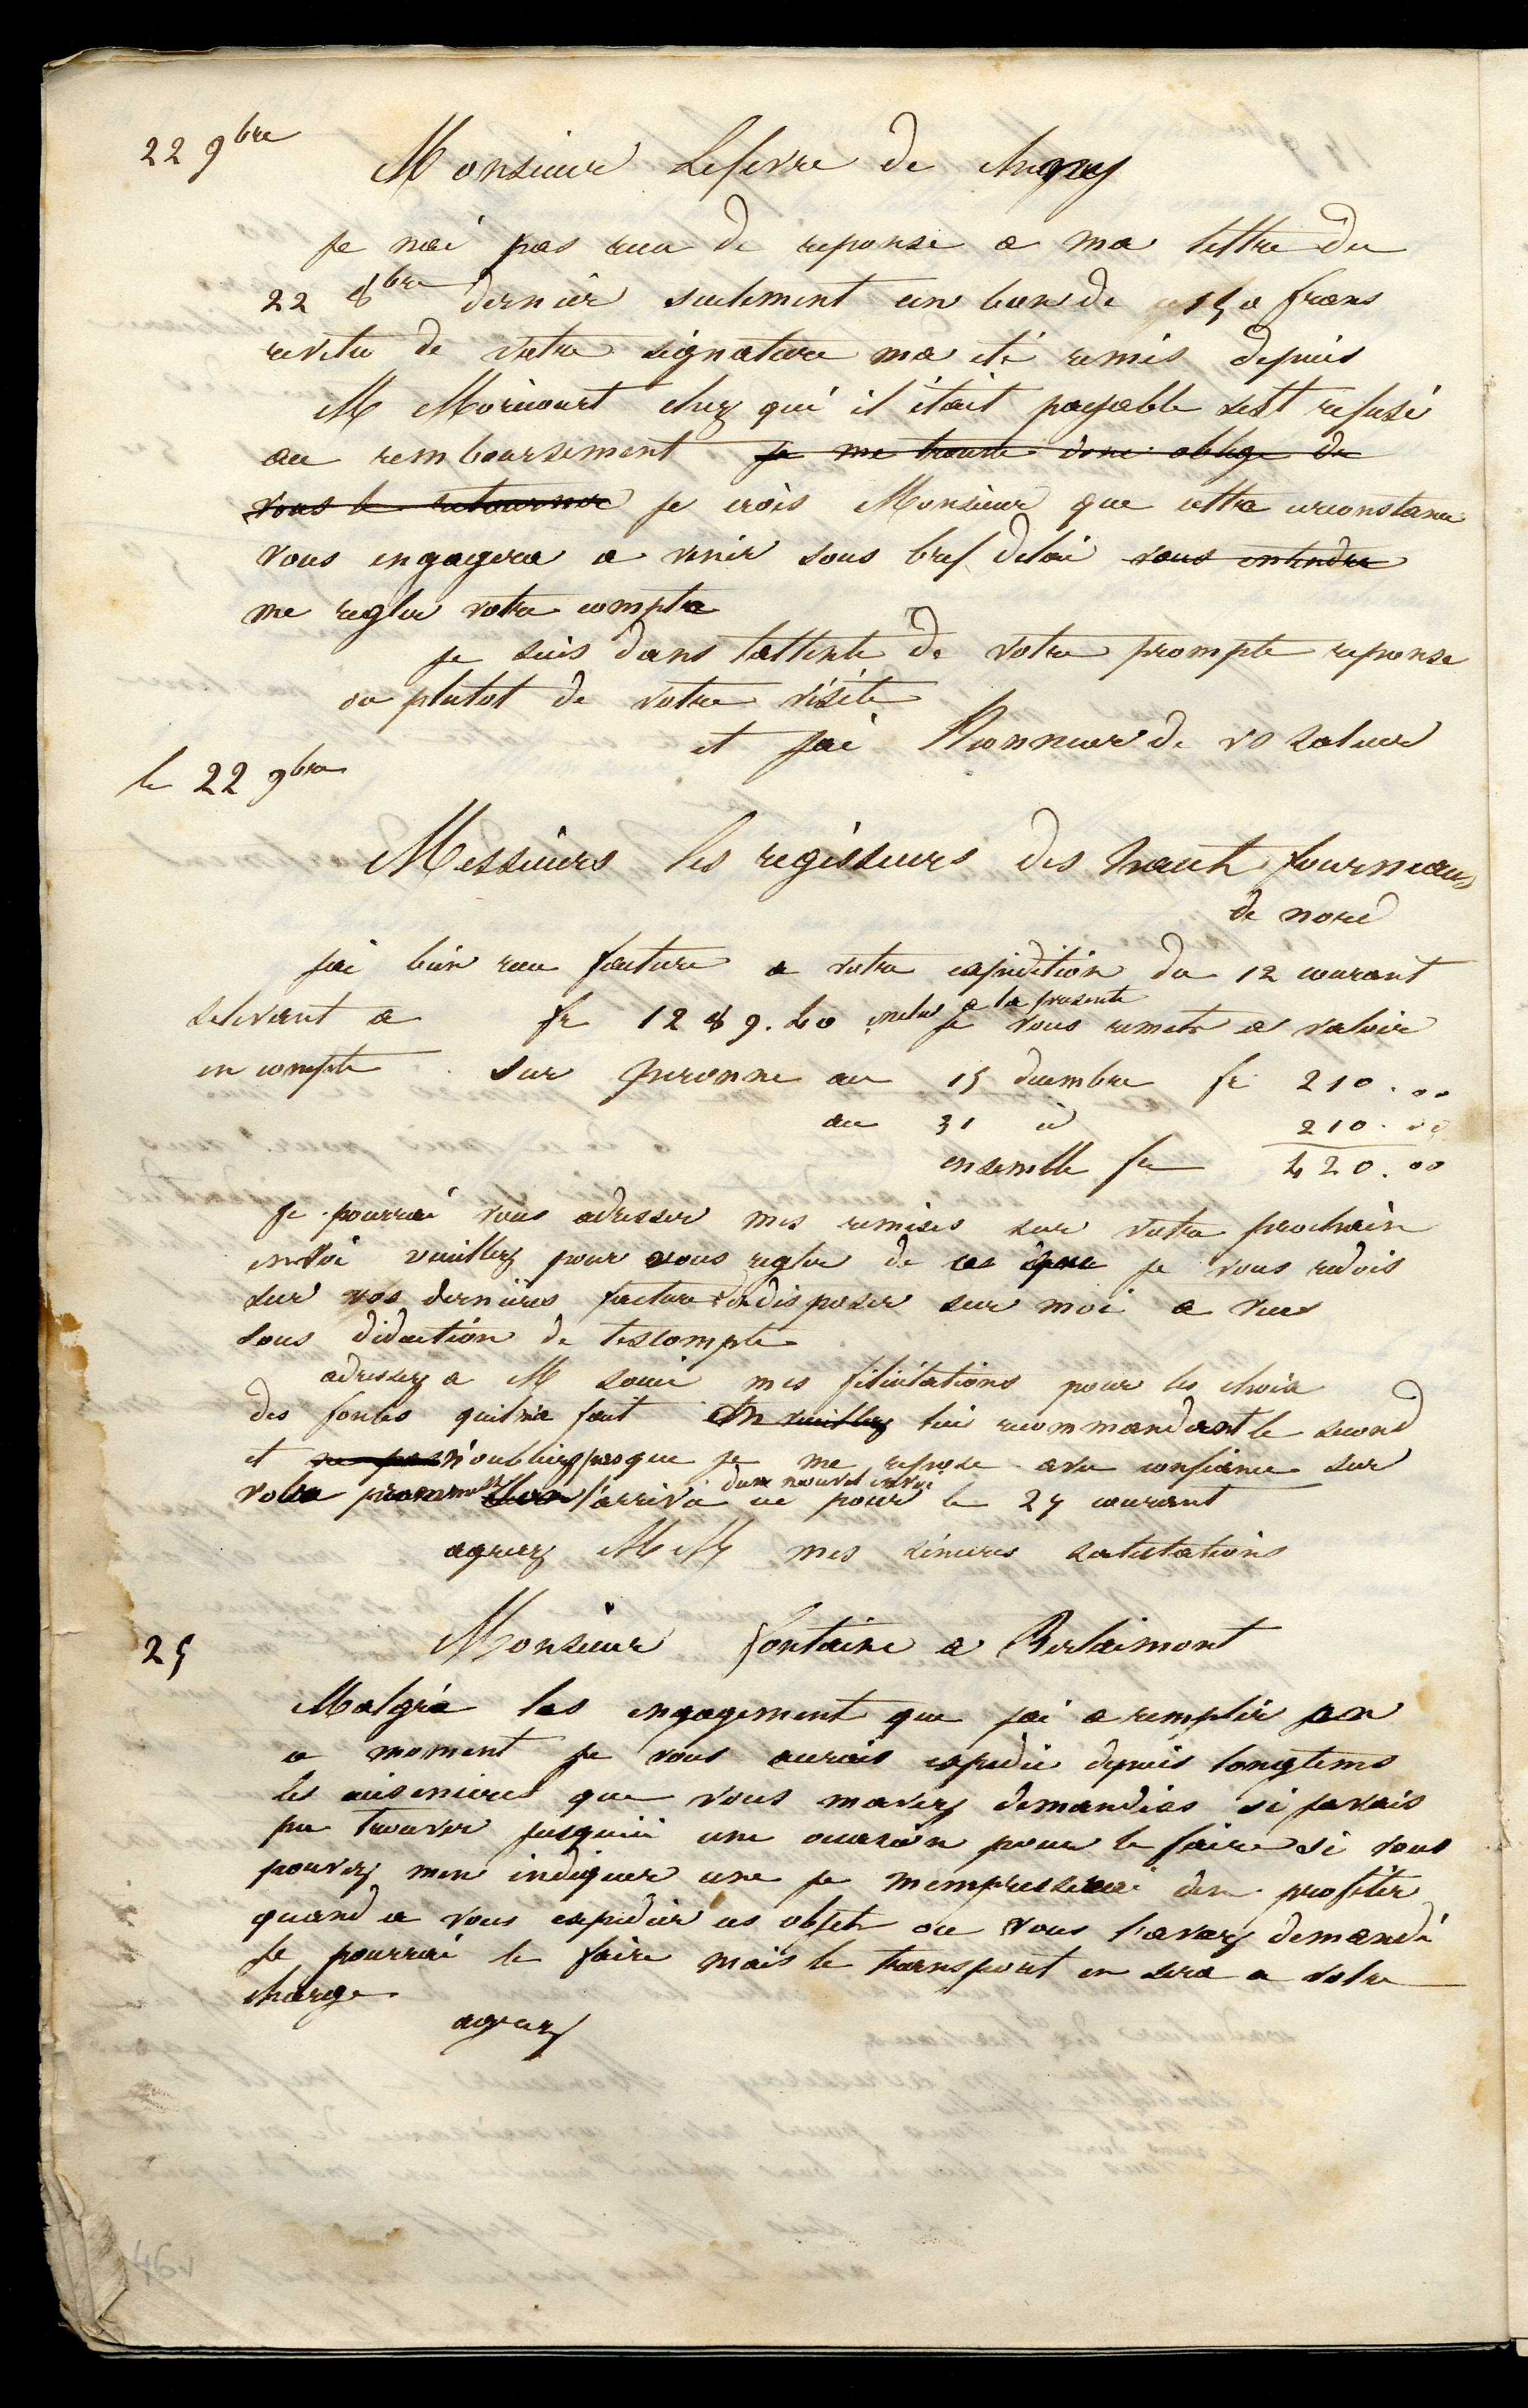 22 9bre
Monsieur Lefevre de chugny
je nai pas recu de reponse a ma lettre du
22 8bre dernier seulement un bon de 150 frans
revetu de votre signature ma eté remis depuis
M Moricourt chez qui il était payable sest refusé
au remboursement je me trouve donc oblige de
vous le retourner je crois Monsieur que cette circonstance
vous engagera a venir sous bref delai vous entendre
me regler votre compte
je suis dans lattente de votre prompte reponse
ou plutot de votre visite
et jai lhonneur de vs saluer
le 22 9bre
Messieurs les regisseurs des haut fourneaux
de nord
jai bien recu facture a votre expedition du 12 courant
selevant a fr 1289.40 inclus a la presente je vous remets a valoir
en compte sur peronne au 15 decembre fr 210.00
au 31 d 210.00
ensemble fr 420.00
je pourrai vous adresser mes remises sur votre prochain
envoi veuillez pour vous regler de ce que je vous redois
sur vos dernieres facture de disposer sur moi a vue
sous deduction de lescompte
adressez a M mes felicitations pour les choix
des fontes quil ma fait en veuillez lui recommandant le second
et ne pas n'oubliez pas que je me repose avec confiance sur
votre promesse larrivé dun nouvel envoi ici pour le 25 courant
agreez MM mes sinceres salutations
25
Monsieur fontaine a Berlaimont
Malgré les engagement que jai a remplir en
ce moment je vous aurais expedié depuis longtems
les cuisinieres que vous mavez demandées si javais
pu trouver jusquici une occasion pour le faire si vous
pouvez men indiquer une je mempresserai den profiter
quand a vous expedier ces objets ou vous l'avez demandé
je pourrai le faire mais le transport en sera a votre
charge
agreez
46v